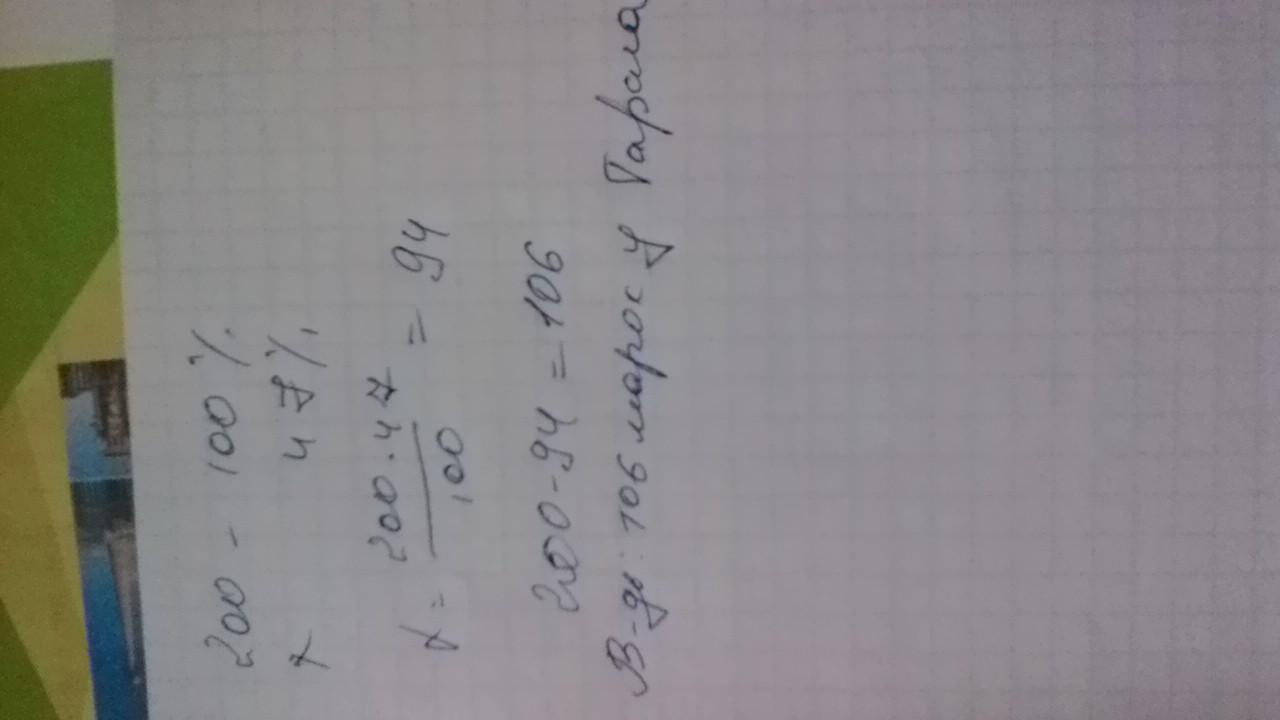 200 - 100%
x 47%
x = 200 · 47 / 100 = 94
200 - 94 = 106
В-дь: 106 марок у Тараса